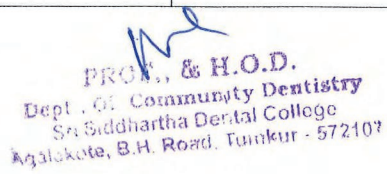 PROF., & H.O.D.
Dept. Of Community Dentistry
Sri Siddhartha Dental College
Agalakote, B.H. Road, Tumkur - 572107